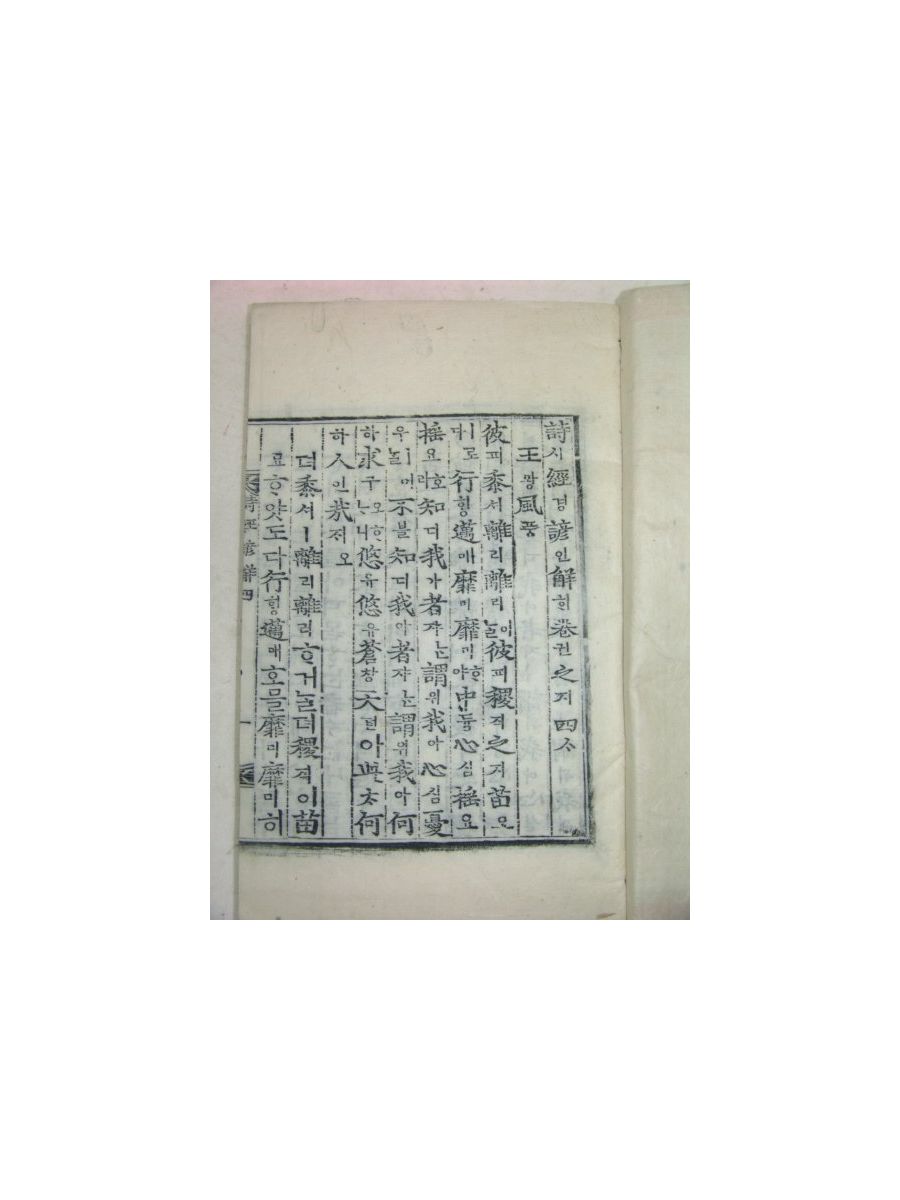 詩시經경諺언解ᄒᆡ卷권之지四ᄉᆞ
王왕風풍
彼피黍셔離리離리이ᄂᆞᆯ彼피稷직之지苗묘
ㅣ로다行ᄒᆡᆼ邁매靡미靡미ᄒᆞ야中듕心심搖요
搖요호라知디我아者쟈ᄂᆞᆫ謂위我아心심憂
우ㅣ어ᄂᆞᆯ不블知디我아者쟈ᄂᆞᆫ謂위我아何
하求구오ᄒᆞᄂᆞ니悠유悠유蒼창天텬아此ᄎᆞ何
하人인哉ᄌᆡ오
뎌黍셔ㅣ離리離리ᄒᆞ거ᄂᆞᆯ뎌稷직이苗
묘ᄒᆞ얏도다行ᄒᆡᆼ邁매호ᄆᆞᆯ靡미靡미히
詩經諺解四 一